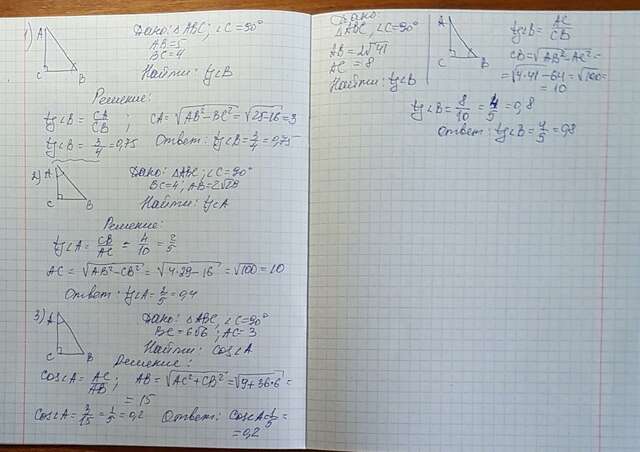 1) Дано: △ABC; ∠C=90°
AB=5
BC=4
Найти: tg∠B
A
C B
Решение:
tg∠B = CA/CB ; CA = √(AB²-BC²) = √(25-16) = 3
tg∠B = 3/4 = 0,75 Ответ: tg∠B = 3/4 = 0,75
2) Дано: △ABC; ∠C=90°
BC=4; AB=2√29
Найти: tg∠A
A
C B
Решение:
tg∠A = CB/AC = 4/10 = 2/5
AC = √(AB²-CB²) = √(4·29-16) = √100 = 10
Ответ: tg∠A = 2/5 = 0,4
3) Дано: △ABC, ∠C=90°
BC=6√6; AC=3
Найти: cos∠A
A
C B
Решение:
cos∠A = AC/AB; AB = √(AC²+CB²) = √(9+36·6) =
= 15
cos∠A = 3/15 = 1/5 = 0,2 Ответ: cos∠A = 1/5 =
= 0,2
Дано:
△ABC, ∠C=90°
AB = 2√41
AC = 8
Найти: tg∠B
A
C B
tg∠B = AC/CB
CB = √(AB²-AC²) =
= √(4·41-64) = √100 =
= 10
tg∠B = 8/10 = 4/5 = 0,8
Ответ: tg∠B = 4/5 = 0,8